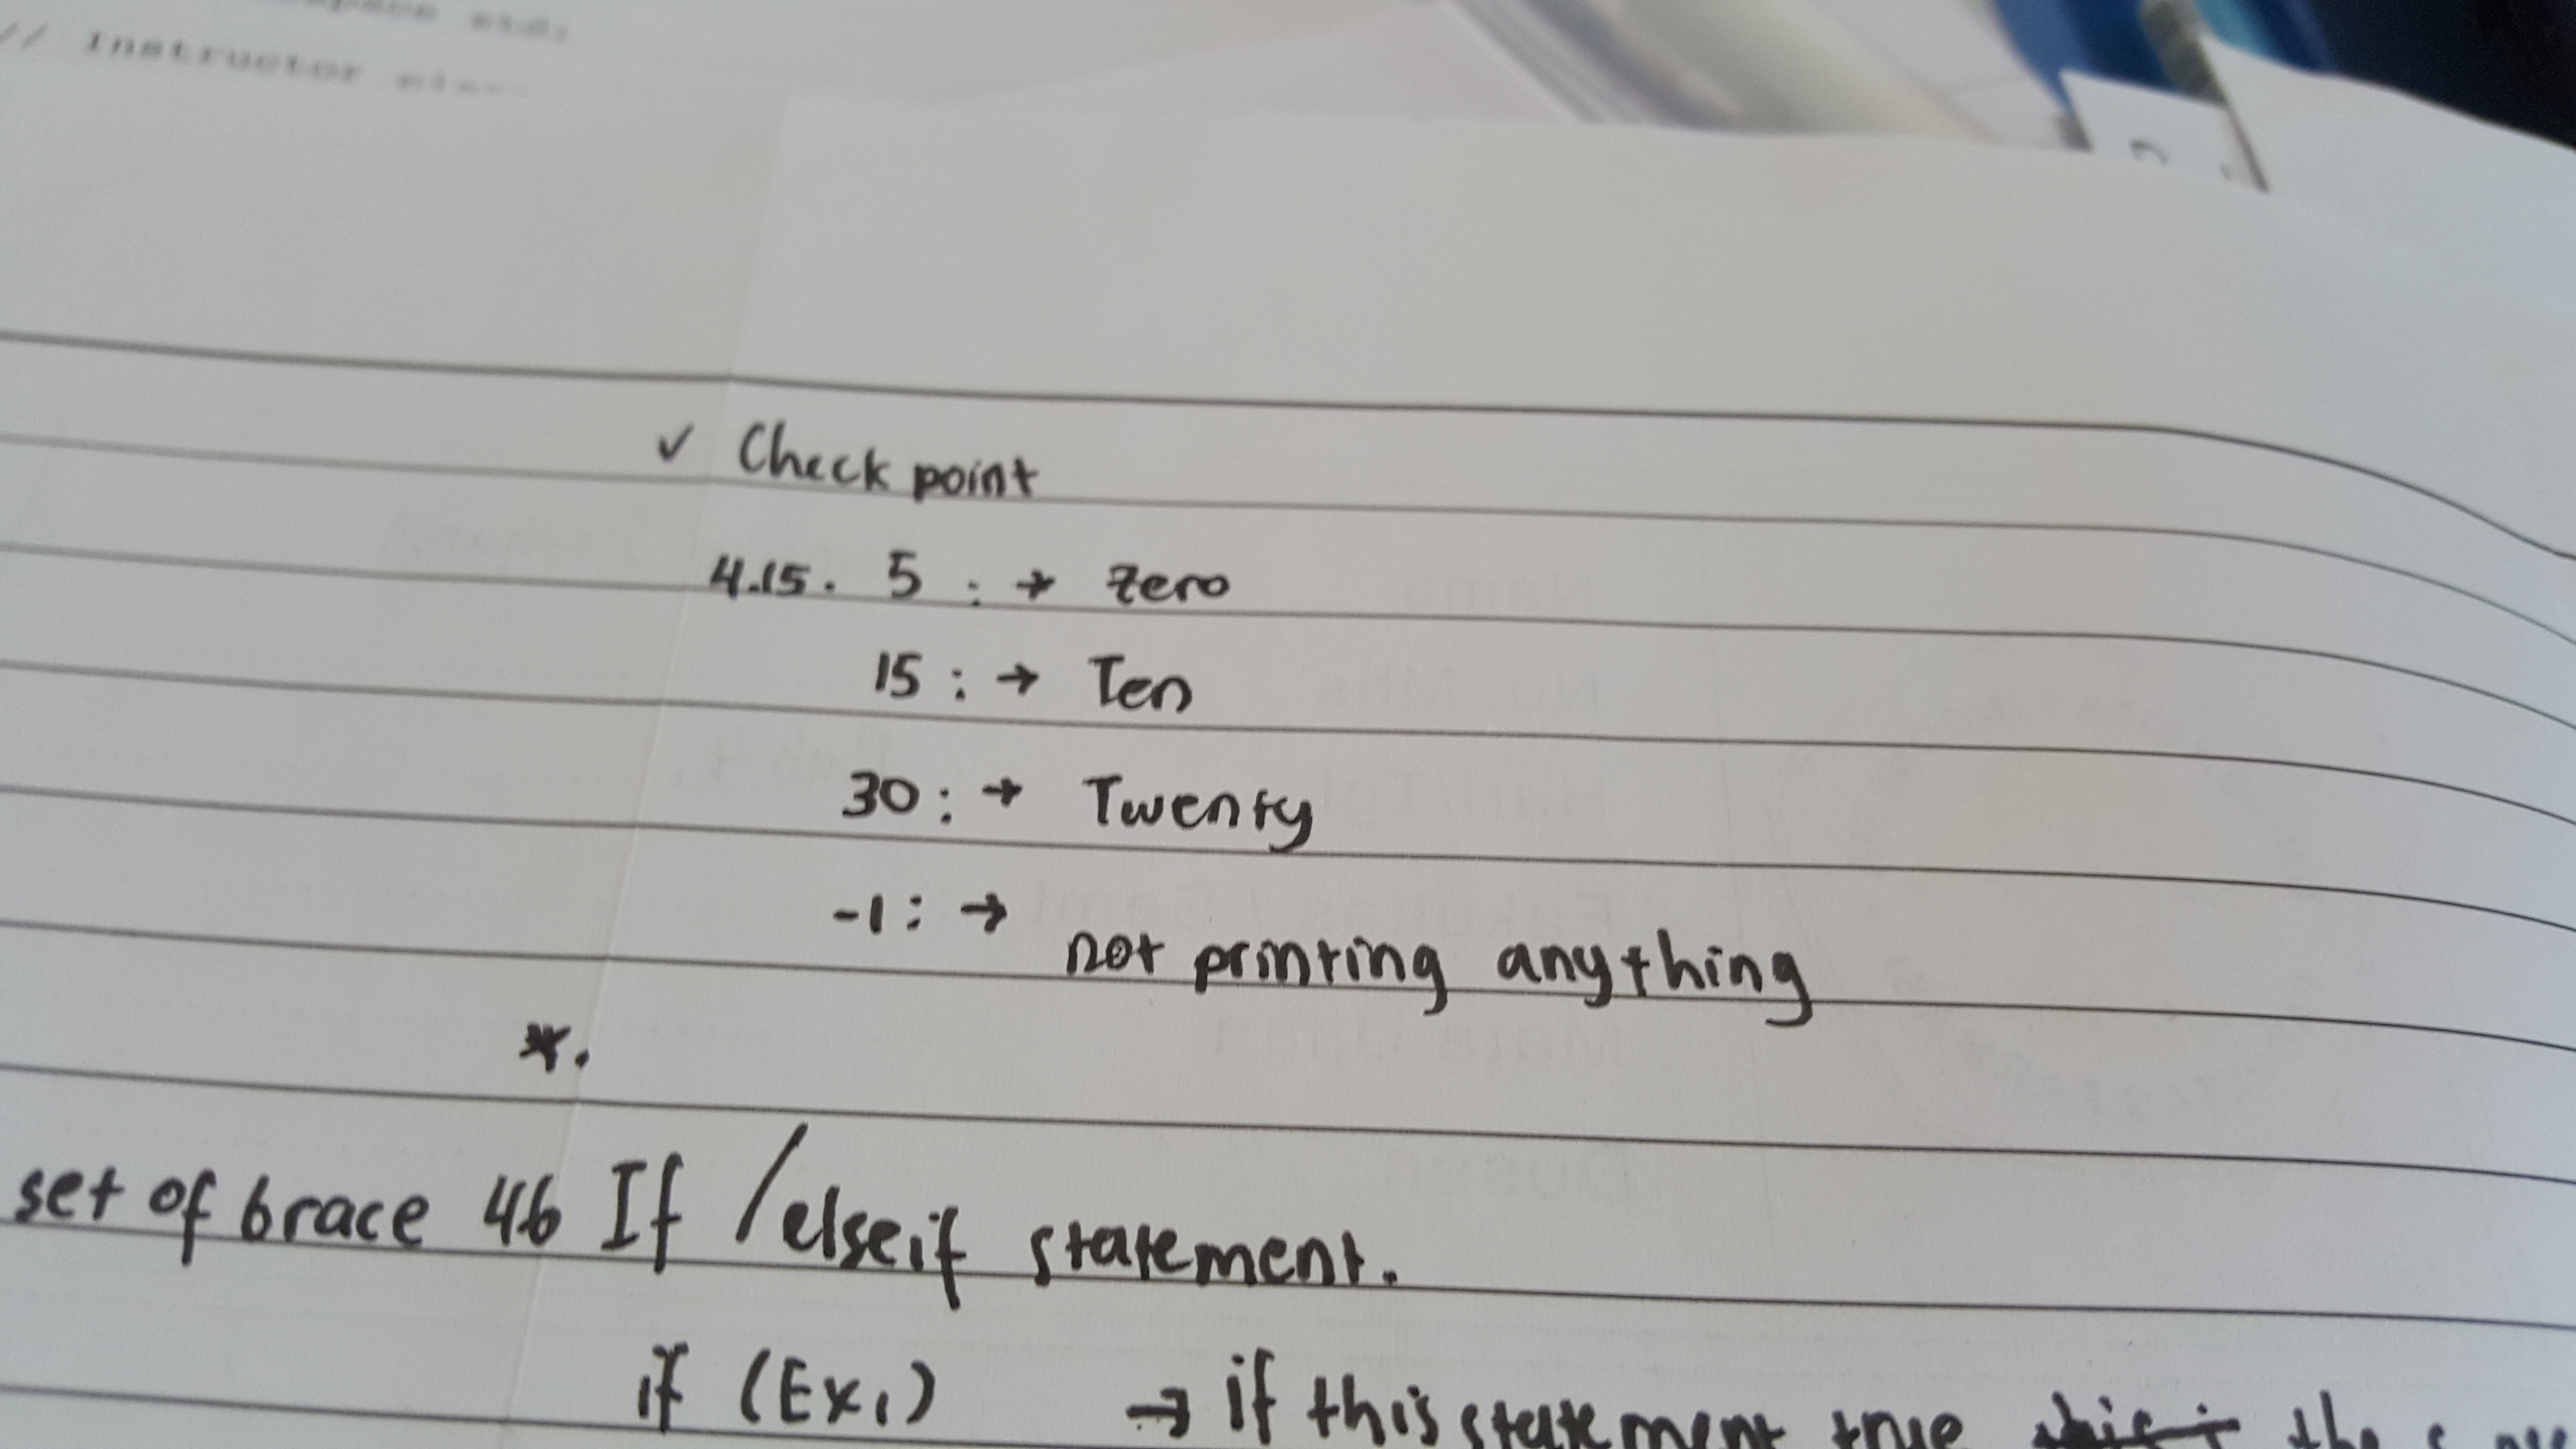 // Instructor
✓ Check point
4.15. 5 : → zero
15 : → Ten
30 : → Twenty
-1 : → not printing anything
*.
set of brace 4.6 If /elseif statement.
if (Ex1) → if this statement true